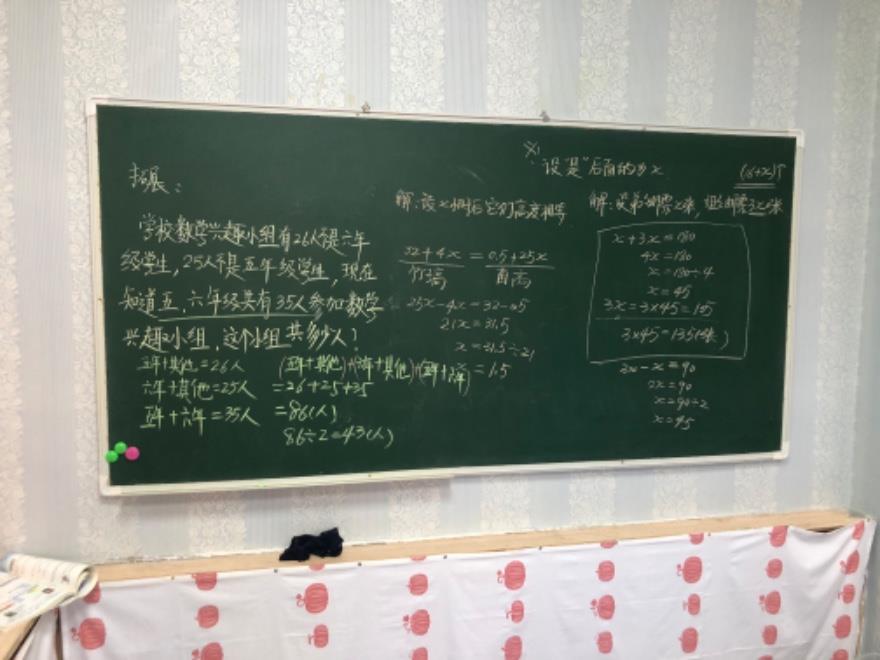 拓展：
学校数学兴趣小组有26人不是六年
级学生，25人不是五年级学生，现在
知道五、六年级共有35人参加数学
兴趣小组，这个小组共多少人？
五年+其他=26人
六年+其他=25人
五年+六年=35人
(五年+其他)+(六年+其他)+(五年+六年)
=26+25+35
=86(人)
86÷2=43(人)
解：设x周后它们高度相等
32+4x=0.5+25x
25x-4x=32-0.5
21x=31.5
x=31.5÷21
x=1.5
※：设"是"后面的为x
x+3x=180
4x=180
x=180÷4
x=45
3x=3×45=135
3×45=135(米)
3x-x=90
2x=90
x=90÷2
x=45